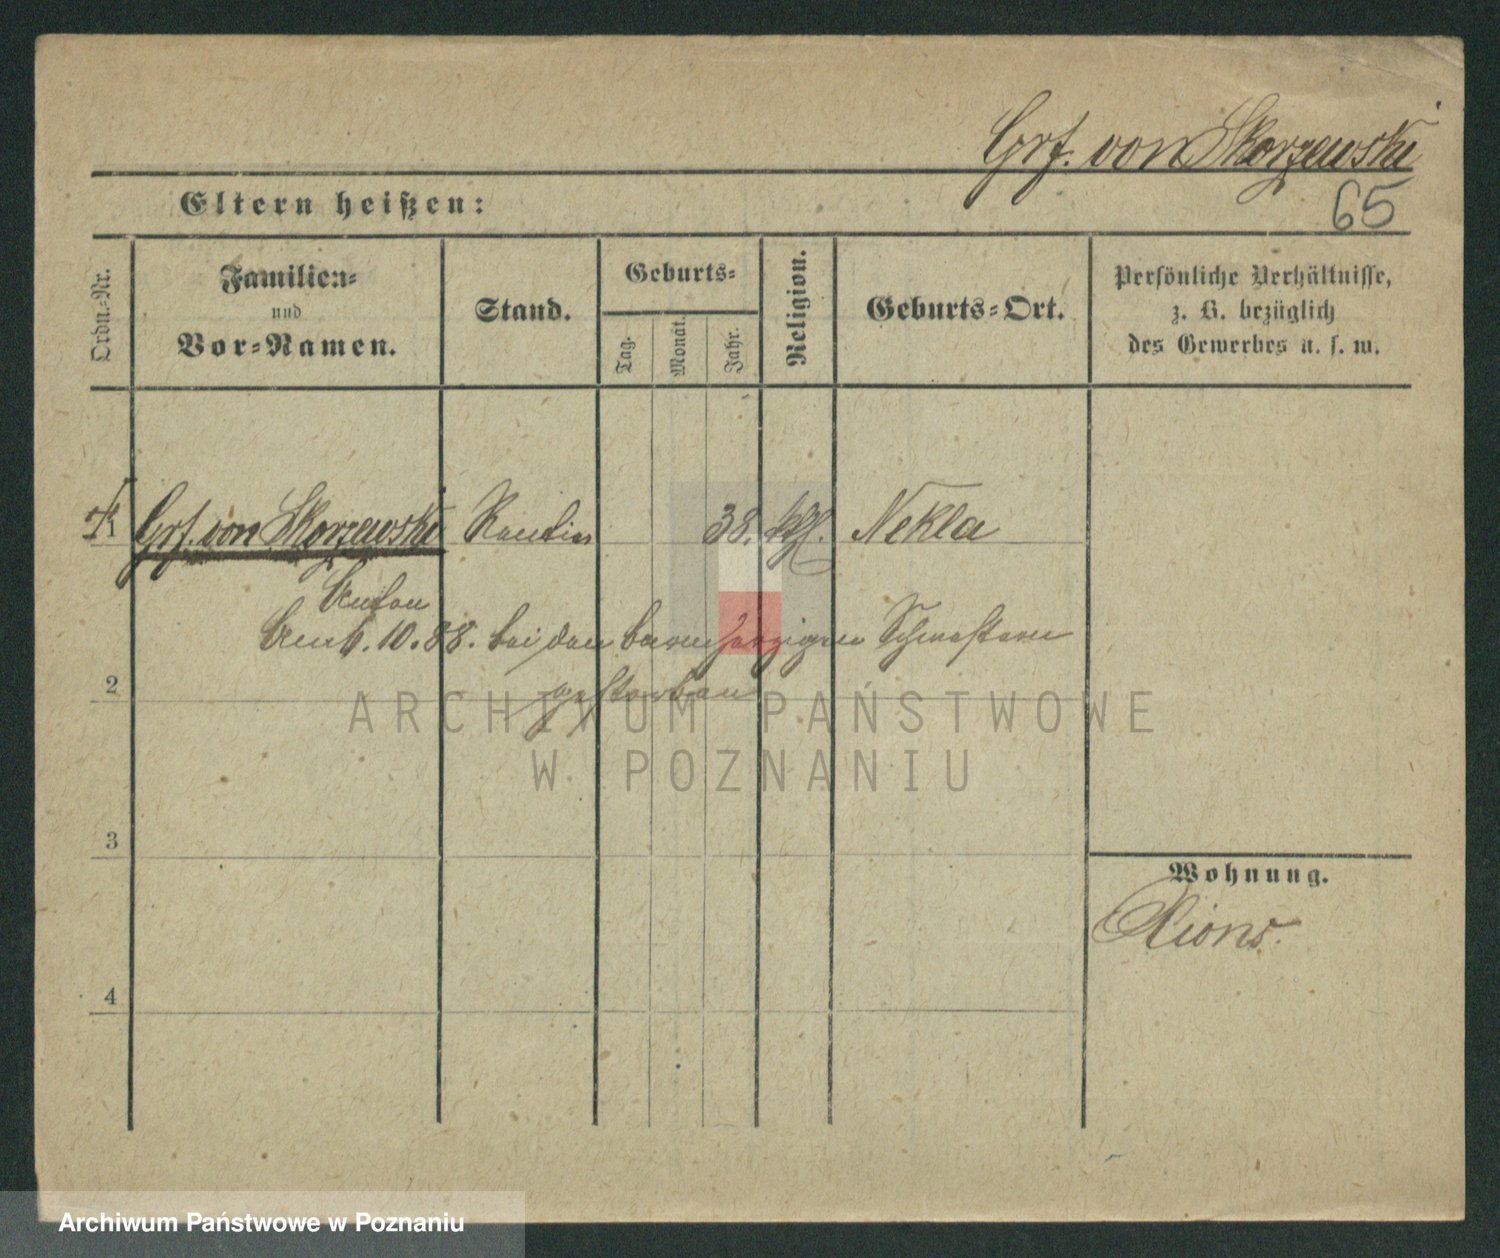 Grf. von Skorzewski
65
Eltern heißen:
Ordn.-Nr.
Familien-
und
Vor-Namen.
Stand.
Geburts-
Tag.
Monat.
Jahr.
Religion.
Geburts-Ort.
Persönliche Verhältnisse,
z. B. bezüglich
des Gewerbes u. s. w.
Grf. von Skorzewski Rentier 38. kth. Nekla
Anton
Am 6. 10. 88. bei den barmherzigen Schwestern
gestorben
2
3
4
Wohnung.
Xions.
ARCHIWUM PAŃSTWOWE
W POZNANIU
Archiwum Państwowe w Poznaniu